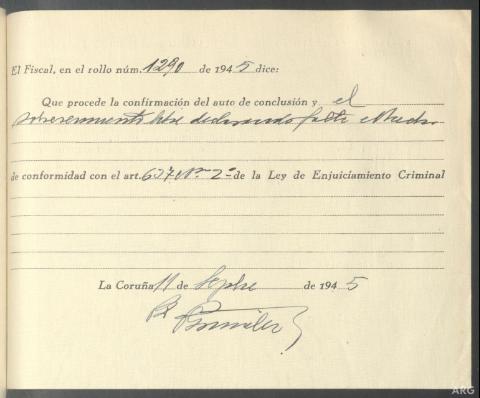 El Fiscal, en el rollo núm. 1290 de 1945 dice:
Que procede la confirmación del auto de conclusión y el
sobreseimiento libre declarando falta
de conformidad con el art. 637 Nº 2º de la Ley de Enjuiciamiento Criminal
La Coruña 11 de Sepbre de 1945
ARG